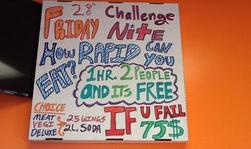 28" Challenge
FRIDAY Nite
HOW RAPID CAN YOU
EAT?
1 HR. 2 PEOPLE
AND ITS FREE
CHOICE
MEAT 25 WINGS
VEGI 2L. SODA
DELUXE
IF U FAIL
75$